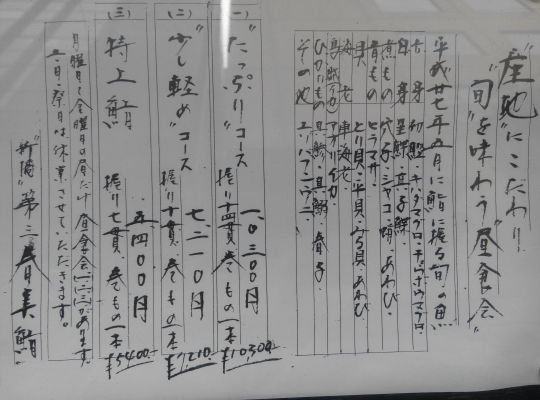 "産地"にこだわり
"旬"を味わう"昼食会"
平成廿七年五月に鮨に握る旬の魚
赤身 初鰹・キハダマグロ・チュウボウマグロ・
白身 星鰈・真子鰈・
煮もの 穴子・シャコ・蛤・あわび・
青もの ヒラマサ・
貝 とり貝・平貝・みる貝・あわび
海老 車海老・
烏賊(イカ) アオリイカ・
ひかりもの 真鯵・真鰯・春子・
その他
(一)
"たっぷりコース 一〇、三〇〇円
握り十四貫 巻もの一本 ¥10,300
(二)
"少し軽め"コース 七二一〇円
握り十貫 巻もの一本 ¥7,210
(三)
特上鮨 五四〇〇円
握り七貫 巻もの一本 ¥5400
月曜日〜金曜日の昼だけ昼食会(一)(二)(三)があります。
土・日・祭日は休業させていただきます。
新橋"第三春美鮨"